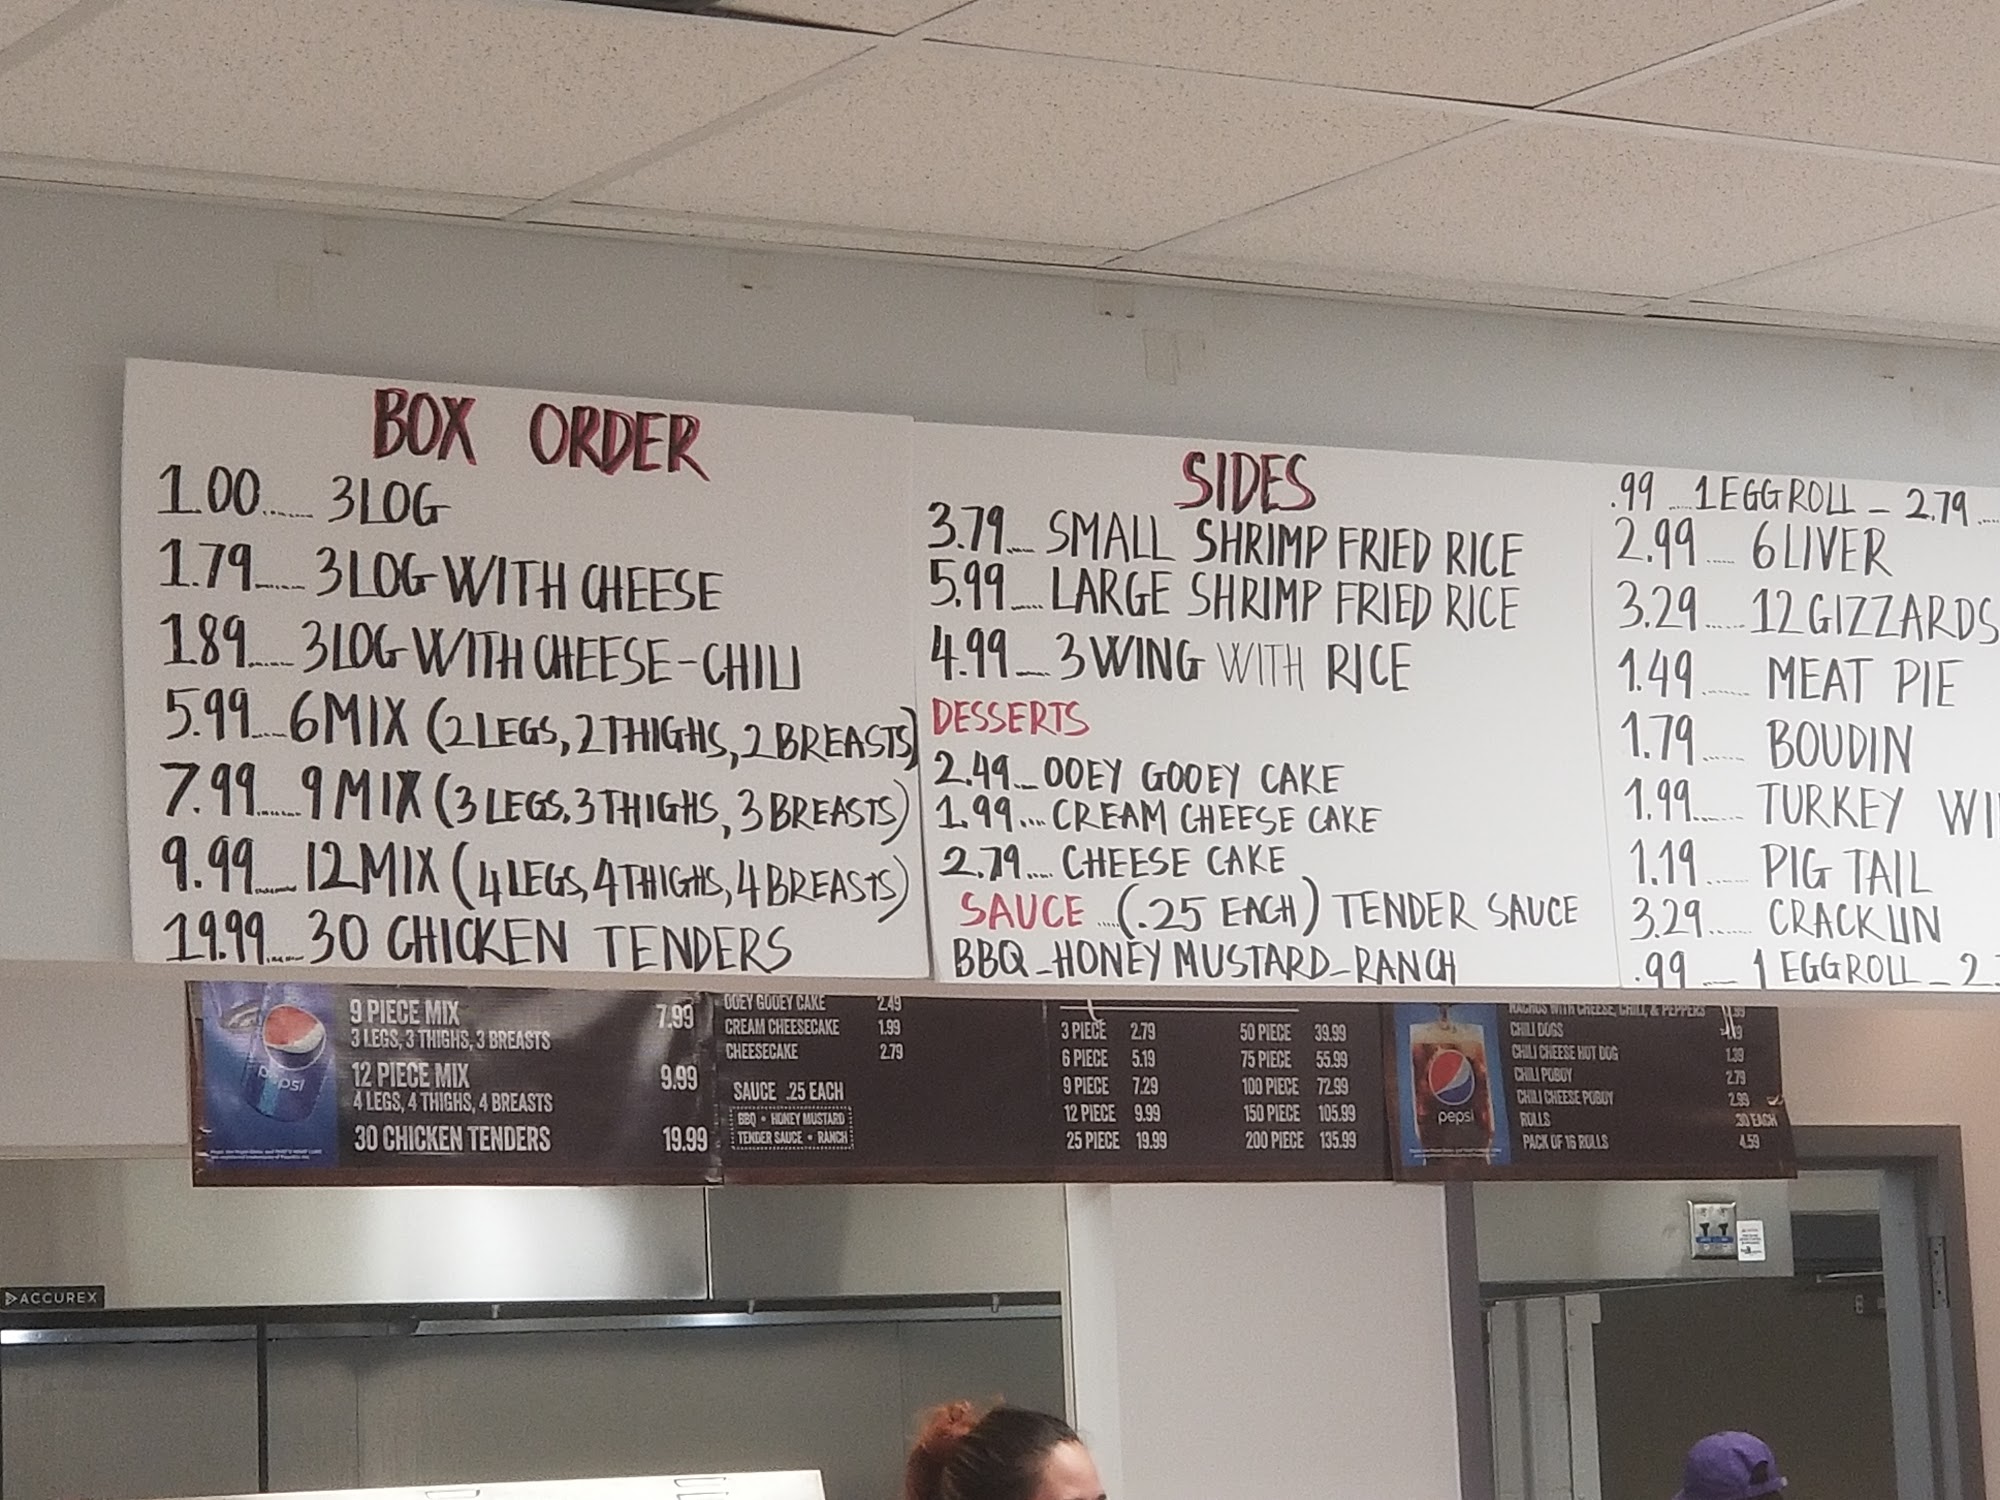 BOX ORDER
1.00....... 3 LOG
1.79....... 3 LOG WITH CHEESE
1.89....... 3 LOG WITH CHEESE - CHILI
5.99.....6 MIX (2 LEGS, 2 THIGHS, 2 BREASTS)
7.99.......9 MIX (3 LEGS, 3 THIGHS, 3 BREASTS)
9.99.......12 MIX (4 LEGS, 4 THIGHS, 4 BREASTS)
19.99......30 CHICKEN TENDERS
SIDES
3.79..... SMALL SHRIMP FRIED RICE
5.99...... LARGE SHRIMP FRIED RICE
4.99...... 3 WING WITH RICE
DESSERTS
2.49.... OOEY GOOEY CAKE
1.99.... CREAM CHEESE CAKE
2.79.... CHEESE CAKE
SAUCE ....(.25 EACH) TENDER SAUCE
BBQ - HONEY MUSTARD - RANCH
.99 ..... 1 EGG ROLL - 2.79 ....
2.99 ..... 6 LIVER
3.29...... 12 GIZZARDS
1.49....... MEAT PIE
1.79...... BOUDIN
1.99....... TURKEY
1.19 ...... PIG TAIL
3.29....... CRACKLIN
.99 ..... 1 EGG ROLL -
9 PIECE MIX 7.99
3 LEGS, 3 THIGHS, 3 BREASTS
12 PIECE MIX 9.99
4 LEGS, 4 THIGHS, 4 BREASTS
30 CHICKEN TENDERS 19.99
pepsi
OOEY GOOEY CAKE 2.49
CREAM CHEESECAKE 1.99
CHEESECAKE 2.79
SAUCE .25 EACH
BBQ • HONEY MUSTARD
TENDER SAUCE • RANCH
3 PIECE 2.79 50 PIECE 39.99
6 PIECE 5.19 75 PIECE 55.99
9 PIECE 7.29 100 PIECE 72.99
12 PIECE 9.99 150 PIECE 105.99
25 PIECE 19.99 200 PIECE 135.99
pepsi
NACHOS WITH CHEESE, CHILI, & PEPPERS
CHILI DOGS
CHILI CHEESE HOT DOG 1.39
CHILI POBOY 2.79
CHILI CHEESE POBOY 2.99
ROLLS .30 EACH
PACK OF 16 ROLLS 4.59
ACCUREX